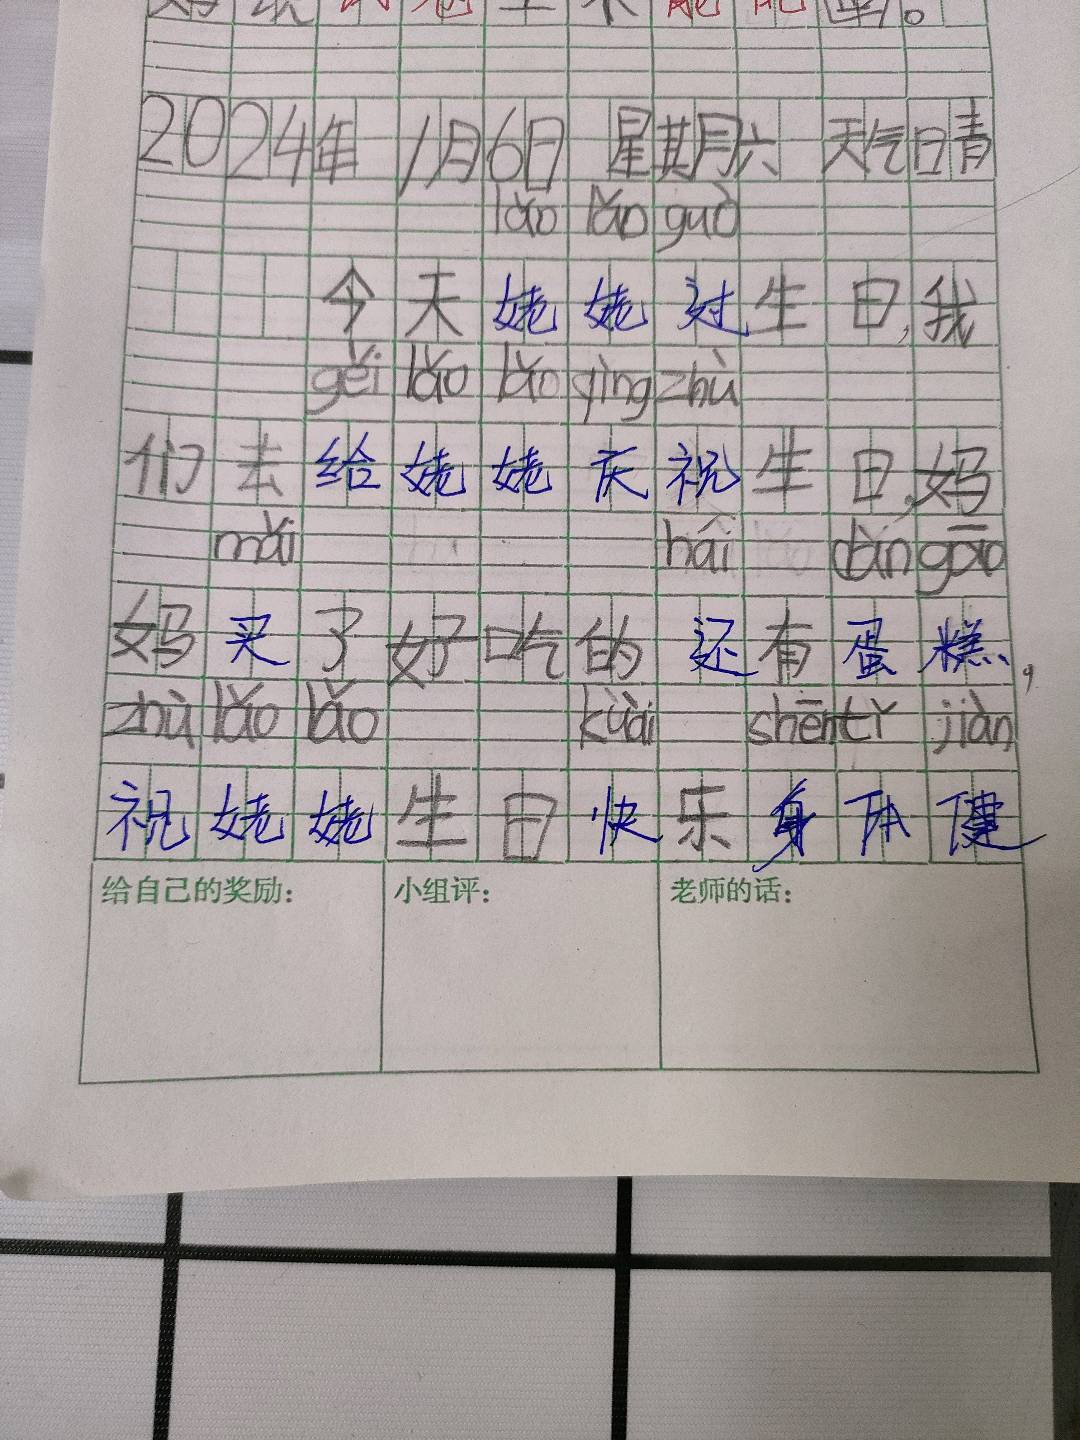 2024年 1月6日 星期六 天气晴
lǎo lǎo guò
今天姥姥过生日,我
gěi lǎo lǎo qìng zhù
们去给姥姥庆祝生日,妈
mǎi hái dàn gāo
妈买了好吃的还有蛋糕,
zhù lǎo lǎo kuài shēn tǐ jiàn
祝姥姥生日快乐身体健
给自己的奖励: 小组评: 老师的话: